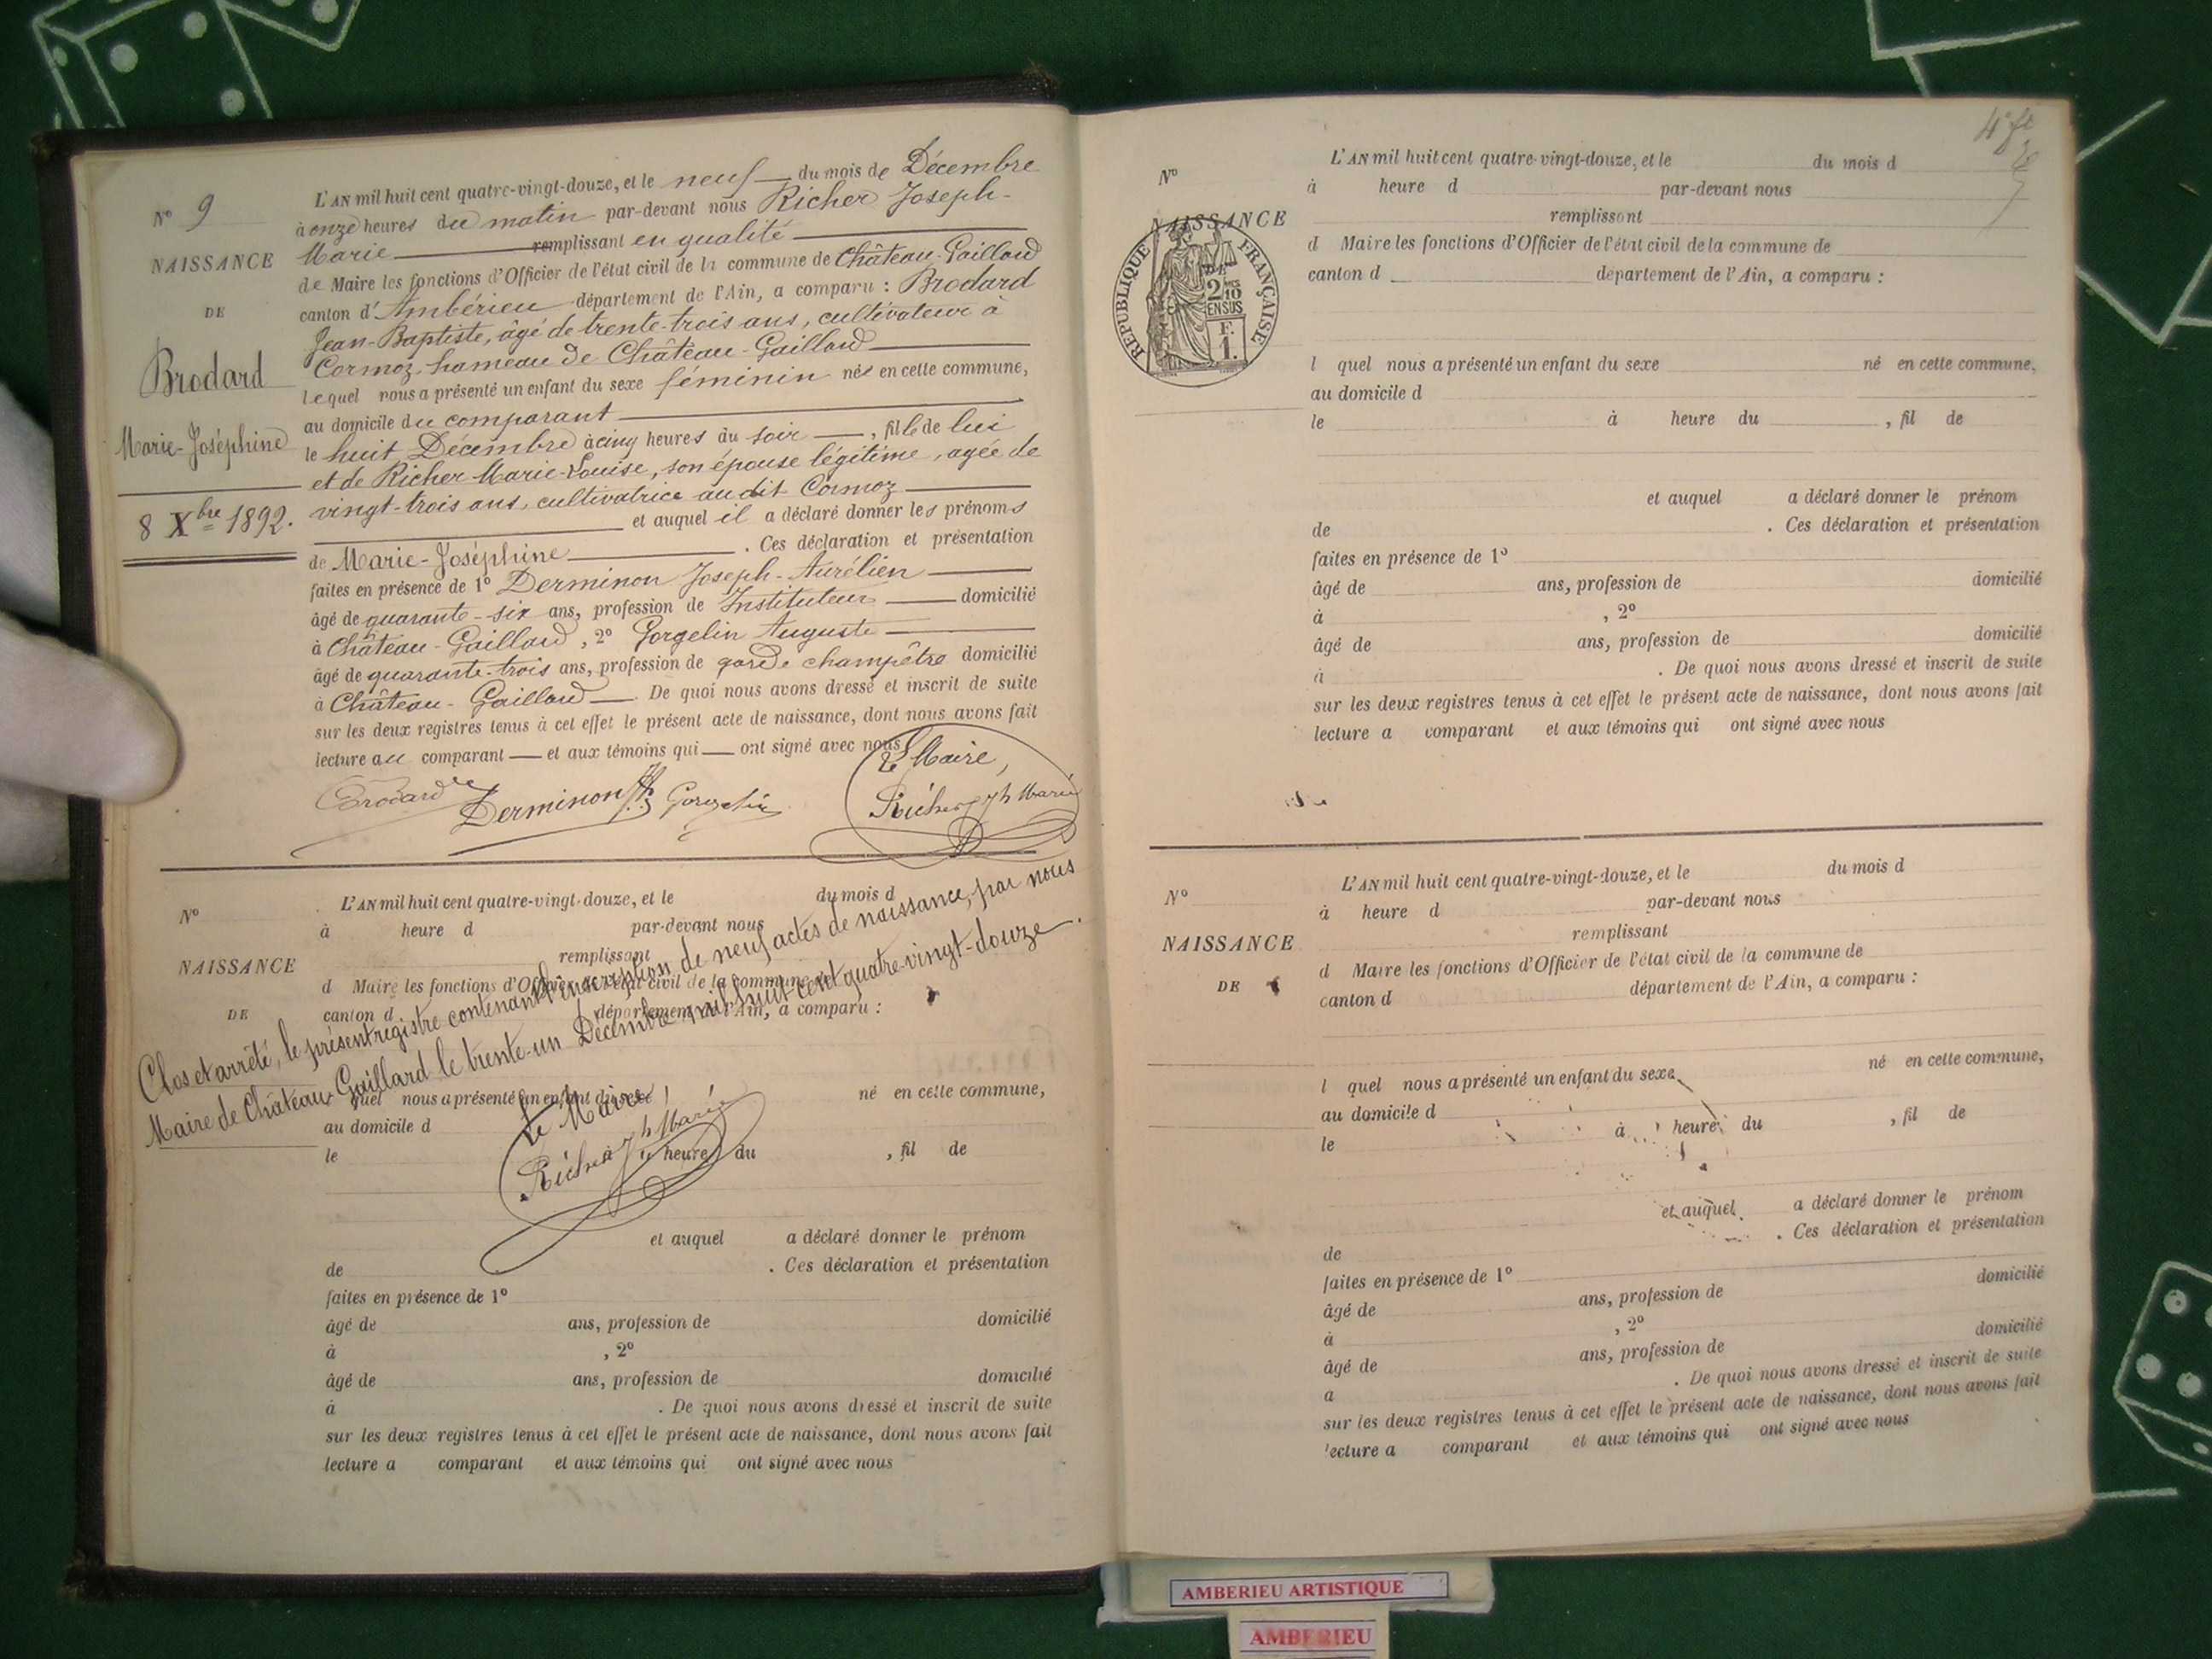 N° 9
NAISSANCE
DE
Brodard
Marie-Joséphine
8 Xbre 1892.
L'AN mil huit cent quatre-vingt-douze, et le neuf du mois de Décembre
à onze heures du matin par-devant nous Richer Joseph-
Marie remplissant en qualité
de Maire les fonctions d'Officier de l'état civil de la commune de Château-Gaillard
canton d'Ambérieu département de l'Ain, a comparu : Brodard
Jean-Baptiste, âgé de trente-trois ans, cultivateur à
Cormoz, hameau de Château-Gaillard
lequel nous a présenté un enfant du sexe féminin née en cette commune,
au domicile du comparant
le huit Décembre à cinq heures du soir, fille de lui
et de Richer Marie-Louise, son épouse légitime, agée de
vingt-trois ans, cultivatrice au dit Cormoz
et auquel il a déclaré donner les prénoms
de Marie-Joséphine. Ces déclaration et présentation
faites en présence de 1° Derminon Joseph-Aurélien
âgé de quarante-six ans, profession de Instituteur domicilié
à Château-Gaillard, 2° Gorgelin Auguste
âgé de quarante-trois ans, profession de garde champêtre domicilié
à Château-Gaillard. De quoi nous avons dressé et inscrit de suite
sur les deux registres tenus à cet effet le présent acte de naissance, dont nous avons fait
lecture au comparant et aux témoins qui ont signé avec nous
Le Maire,
Brodard Derminon Gorgelin Richer Jh Marie
N°
NAISSANCE
DE
L'AN mil huit cent quatre-vingt-douze, et le du mois d
à heure d par-devant nous
remplissant
d Maire les fonctions d'Officier de l'état civil de la commune de
canton d département de l'Ain, a comparu :
Clos et arrêté, le présent registre contenant l'inscription de neuf actes de naissance, par nous
Maire de Château-Gaillard le trente-un Décembre mil huit cent quatre-vingt-douze.
Le Maire,
Richer Jh Marie
l quel nous a présenté un enfant du sexe né en cette commune,
au domicile d
le à heure du , fil de
et auquel a déclaré donner le prénom
de . Ces déclaration et présentation
faites en présence de 1°
âgé de ans, profession de domicilié
à , 2°
âgé de ans, profession de domicilié
à . De quoi nous avons dressé et inscrit de suite
sur les deux registres tenus à cet effet le présent acte de naissance, dont nous avons fait
lecture a comparant et aux témoins qui ont signé avec nous
N°
NAISSANCE
DE
RÉPUBLIQUE FRANÇAISE
2/10 EN SUS
F. 1.
L'AN mil huit cent quatre-vingt-douze, et le du mois d
à heure d par-devant nous
remplissant
d Maire les fonctions d'Officier de l'état civil de la commune de
canton d département de l'Ain, a comparu :
l quel nous a présenté un enfant du sexe né en cette commune,
au domicile d
le à heure du , fil de
et auquel a déclaré donner le prénom
de . Ces déclaration et présentation
faites en présence de 1°
âgé de ans, profession de domicilié
à , 2°
âgé de ans, profession de domicilié
à . De quoi nous avons dressé et inscrit de suite
sur les deux registres tenus à cet effet le présent acte de naissance, dont nous avons fait
lecture a comparant et aux témoins qui ont signé avec nous
N°
NAISSANCE
DE
L'AN mil huit cent quatre-vingt-douze, et le du mois d
à heure d par-devant nous
remplissant
d Maire les fonctions d'Officier de l'état civil de la commune de
canton d département de l'Ain, a comparu :
l quel nous a présenté un enfant du sexe né en cette commune,
au domicile d
le à heure du , fil de
et auquel a déclaré donner le prénom
de . Ces déclaration et présentation
faites en présence de 1°
âgé de ans, profession de domicilié
à , 2°
âgé de ans, profession de domicilié
a . De quoi nous avons dressé et inscrit de suite
sur les deux registres tenus à cet effet le présent acte de naissance, dont nous avons fait
lecture a comparant et aux témoins qui ont signé avec nous
AMBERIEU ARTISTIQUE
AMBERIEU